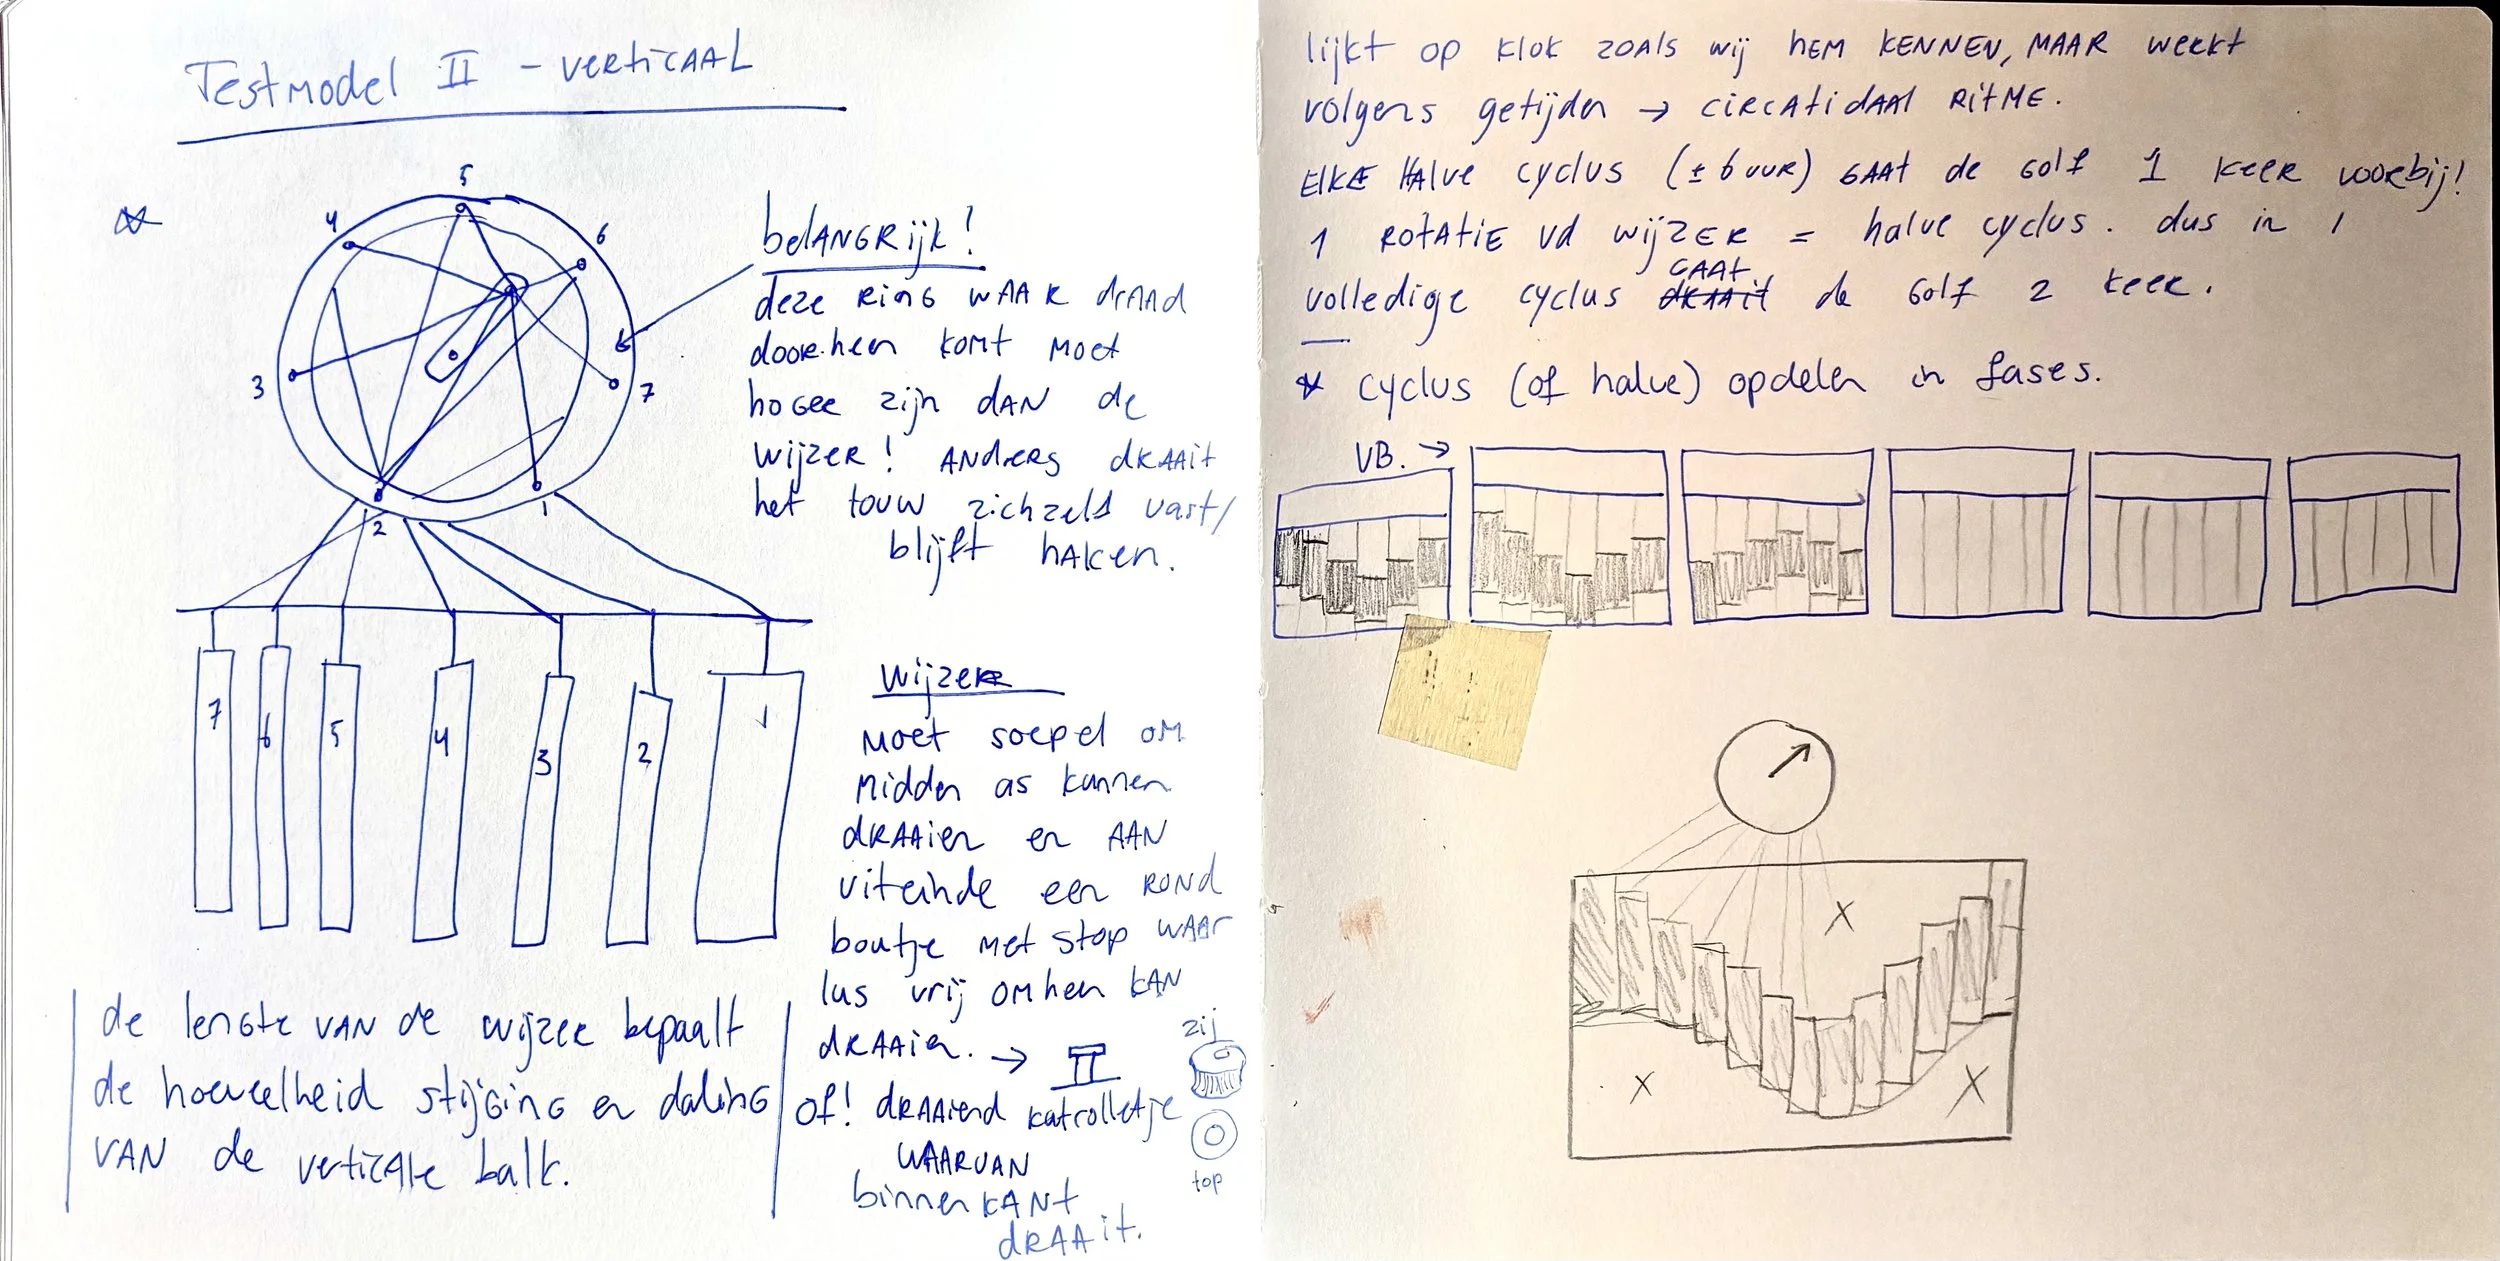 Testmodel II - verticaal
5
4
6
3
7
2
1
belangrijk!
deze ring waar draad
doorheen komt moet
hoger zijn dan de
wijzer! Anders draait
het touw zichzelf vast/
blijft haken.
7 6 5 4 3 2 1
wijzer
moet soepel om
midden as kunnen
draaien en aan
uiteinde een rond
boutje met stop waar
lus vrij omheen kan
draaien. →
of! draaiend katrolletje
waarvan
binnenkant
draait.
zij
top
de lengte van de wijzer bepaalt
de hoeveelheid stijging en daling
van de verticale balk.
lijkt op klok zoals wij hem kennen, maar werkt
volgens getijden → circatidaal ritme.
Elke halve cyclus (± 6 uur) gaat de golf 1 keer voorbij!
1 rotatie vd wijzer = halve cyclus. dus in 1
volledige cyclus draait gaat de golf 2 keer.
* cyclus (of halve) opdelen in fases.
VB. →
x
x
x